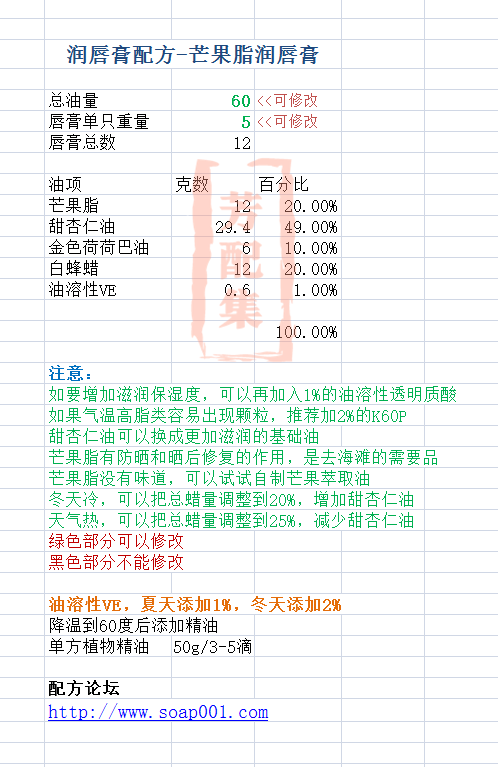 润唇膏配方-芒果脂润唇膏
总油量 60 <<可修改
唇膏单只重量 5 <<可修改
唇膏总数 12
油项 克数 百分比
芒果脂 12 20.00%
甜杏仁油 29.4 49.00%
金色荷荷巴油 6 10.00%
白蜂蜡 12 20.00%
油溶性VE 0.6 1.00%
100.00%
芳配集
注意：
如要增加滋润保湿度，可以再加入1%的油溶性透明质酸
如果气温高脂类容易出现颗粒，推荐加2%的K60P
甜杏仁油可以换成更加滋润的基础油
芒果脂有防晒和晒后修复的作用，是去海滩的需要品
芒果脂没有味道，可以试试自制芒果萃取油
冬天冷，可以把总蜡量调整到20%，增加甜杏仁油
天气热，可以把总蜡量调整到25%，减少甜杏仁油
绿色部分可以修改
黑色部分不能修改
油溶性VE，夏天添加1%，冬天添加2%
降温到60度后添加精油
单方植物精油 50g/3-5滴
配方论坛
http://www.soap001.com